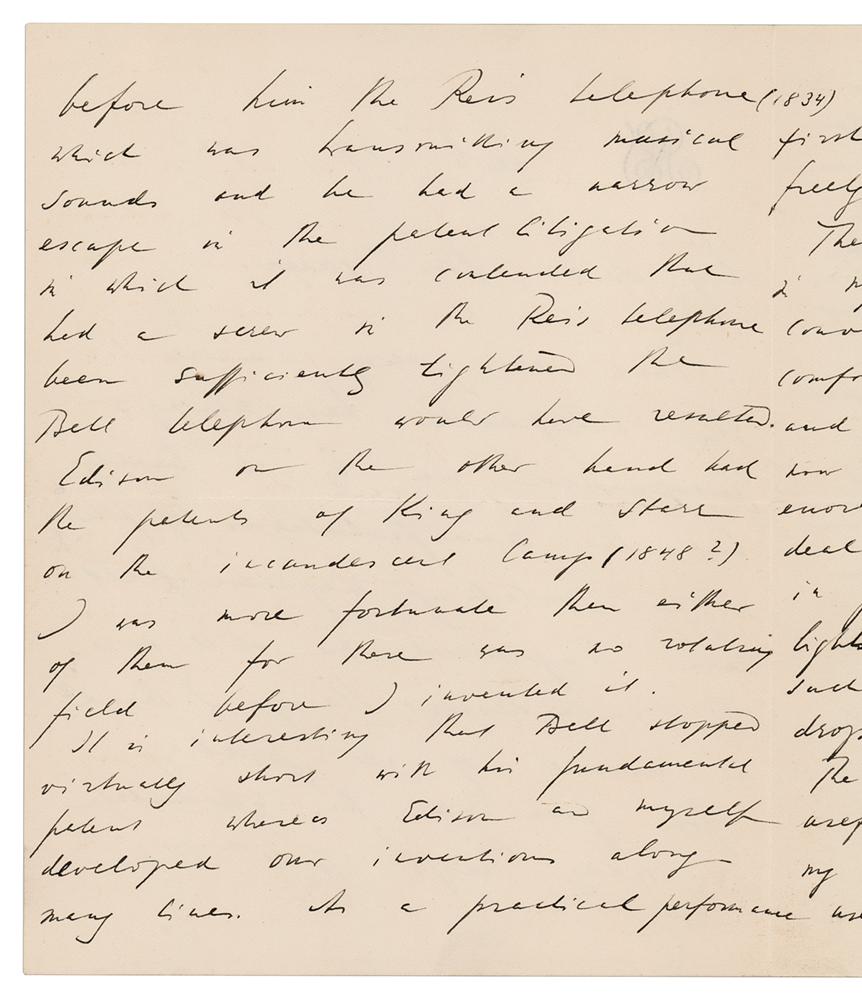 before him the Reis telephone (1834)
which was transmitting musical
sounds and he had a narrow
escape in the patent litigation
in which it was contended that
had a screw in the Reis telephone
been sufficiently tightened the
Bell telephone would have resulted.
Edison on the other hand had
the patents of King and Starr
on the incandescent lamp (1848?)
I was more fortunate than either
of them for there was no rotating
field before I invented it.
It is interesting that Bell stopped
virtually short with his fundamental
patent whereas Edison and myself
developed our inventions along
many lines. As a practical performance
first
freely
The
in
conv
comfo
and
now
enor
deal
in
light
such
drop
The
usef
my
use